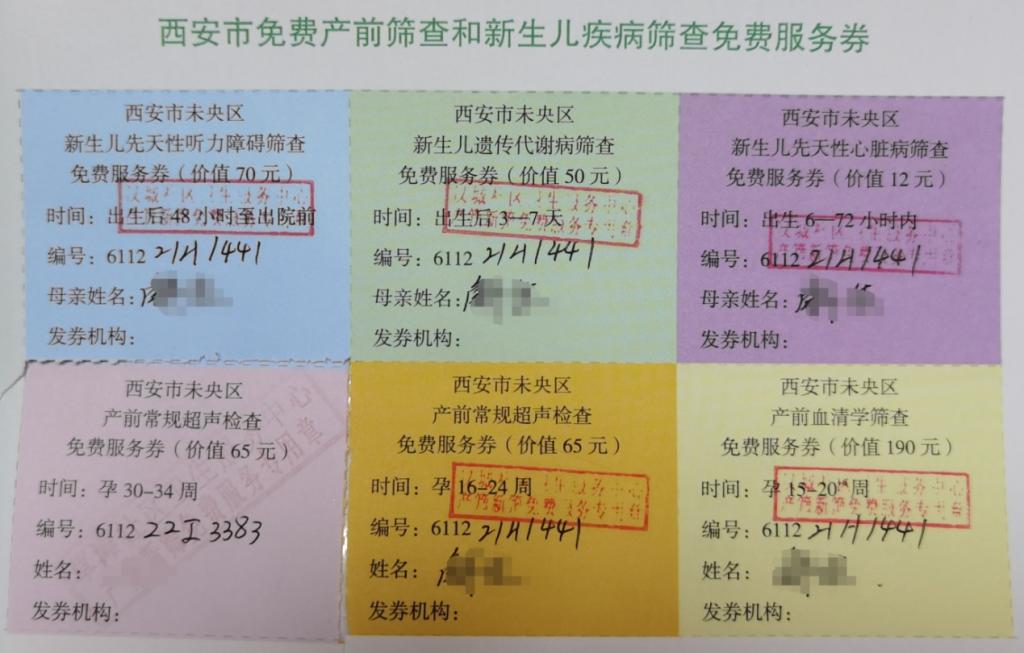 西安市免费产前筛查和新生儿疾病筛查免费服务券
西安市未央区
新生儿先天性听力障碍筛查
免费服务券（价值 70 元）
时间：出生后 48 小时至出院前
编号：6112 21H1441
母亲姓名：
发券机构：
西安市未央区
新生儿遗传代谢病筛查
免费服务券（价值 50 元）
时间：出生后 3—7 天
编号：6112 21H1441
母亲姓名：
发券机构：
西安市未央区
新生儿先天性心脏病筛查
免费服务券（价值 12 元）
时间：出生 6—72 小时内
编号：6112 21H1441
母亲姓名：
发券机构：
西安市未央区
产前常规超声检查
免费服务券（价值 65 元）
时间：孕 30-34 周
编号：6112 22I3383
姓名：
发券机构：
西安市未央区
产前常规超声检查
免费服务券（价值 65 元）
时间：孕 16-24 周
编号：6112 21H1441
姓名：
发券机构：
西安市未央区
产前血清学筛查
免费服务券（价值 190 元）
时间：孕 15-20 周
编号：6112 21H1441
姓名：
发券机构：